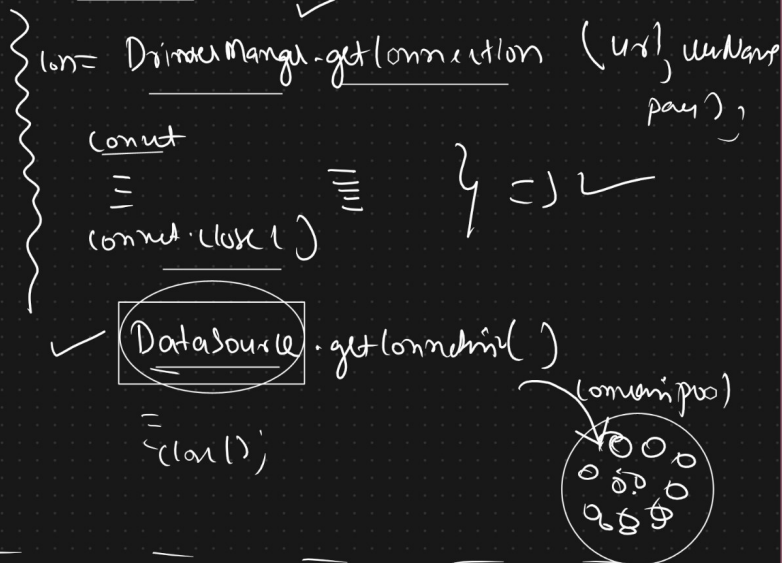 con= DriverManger.getConnection (url, userName
pass);
connect
connect.close()
DataSource.getConnection()
(connection pool)
close();